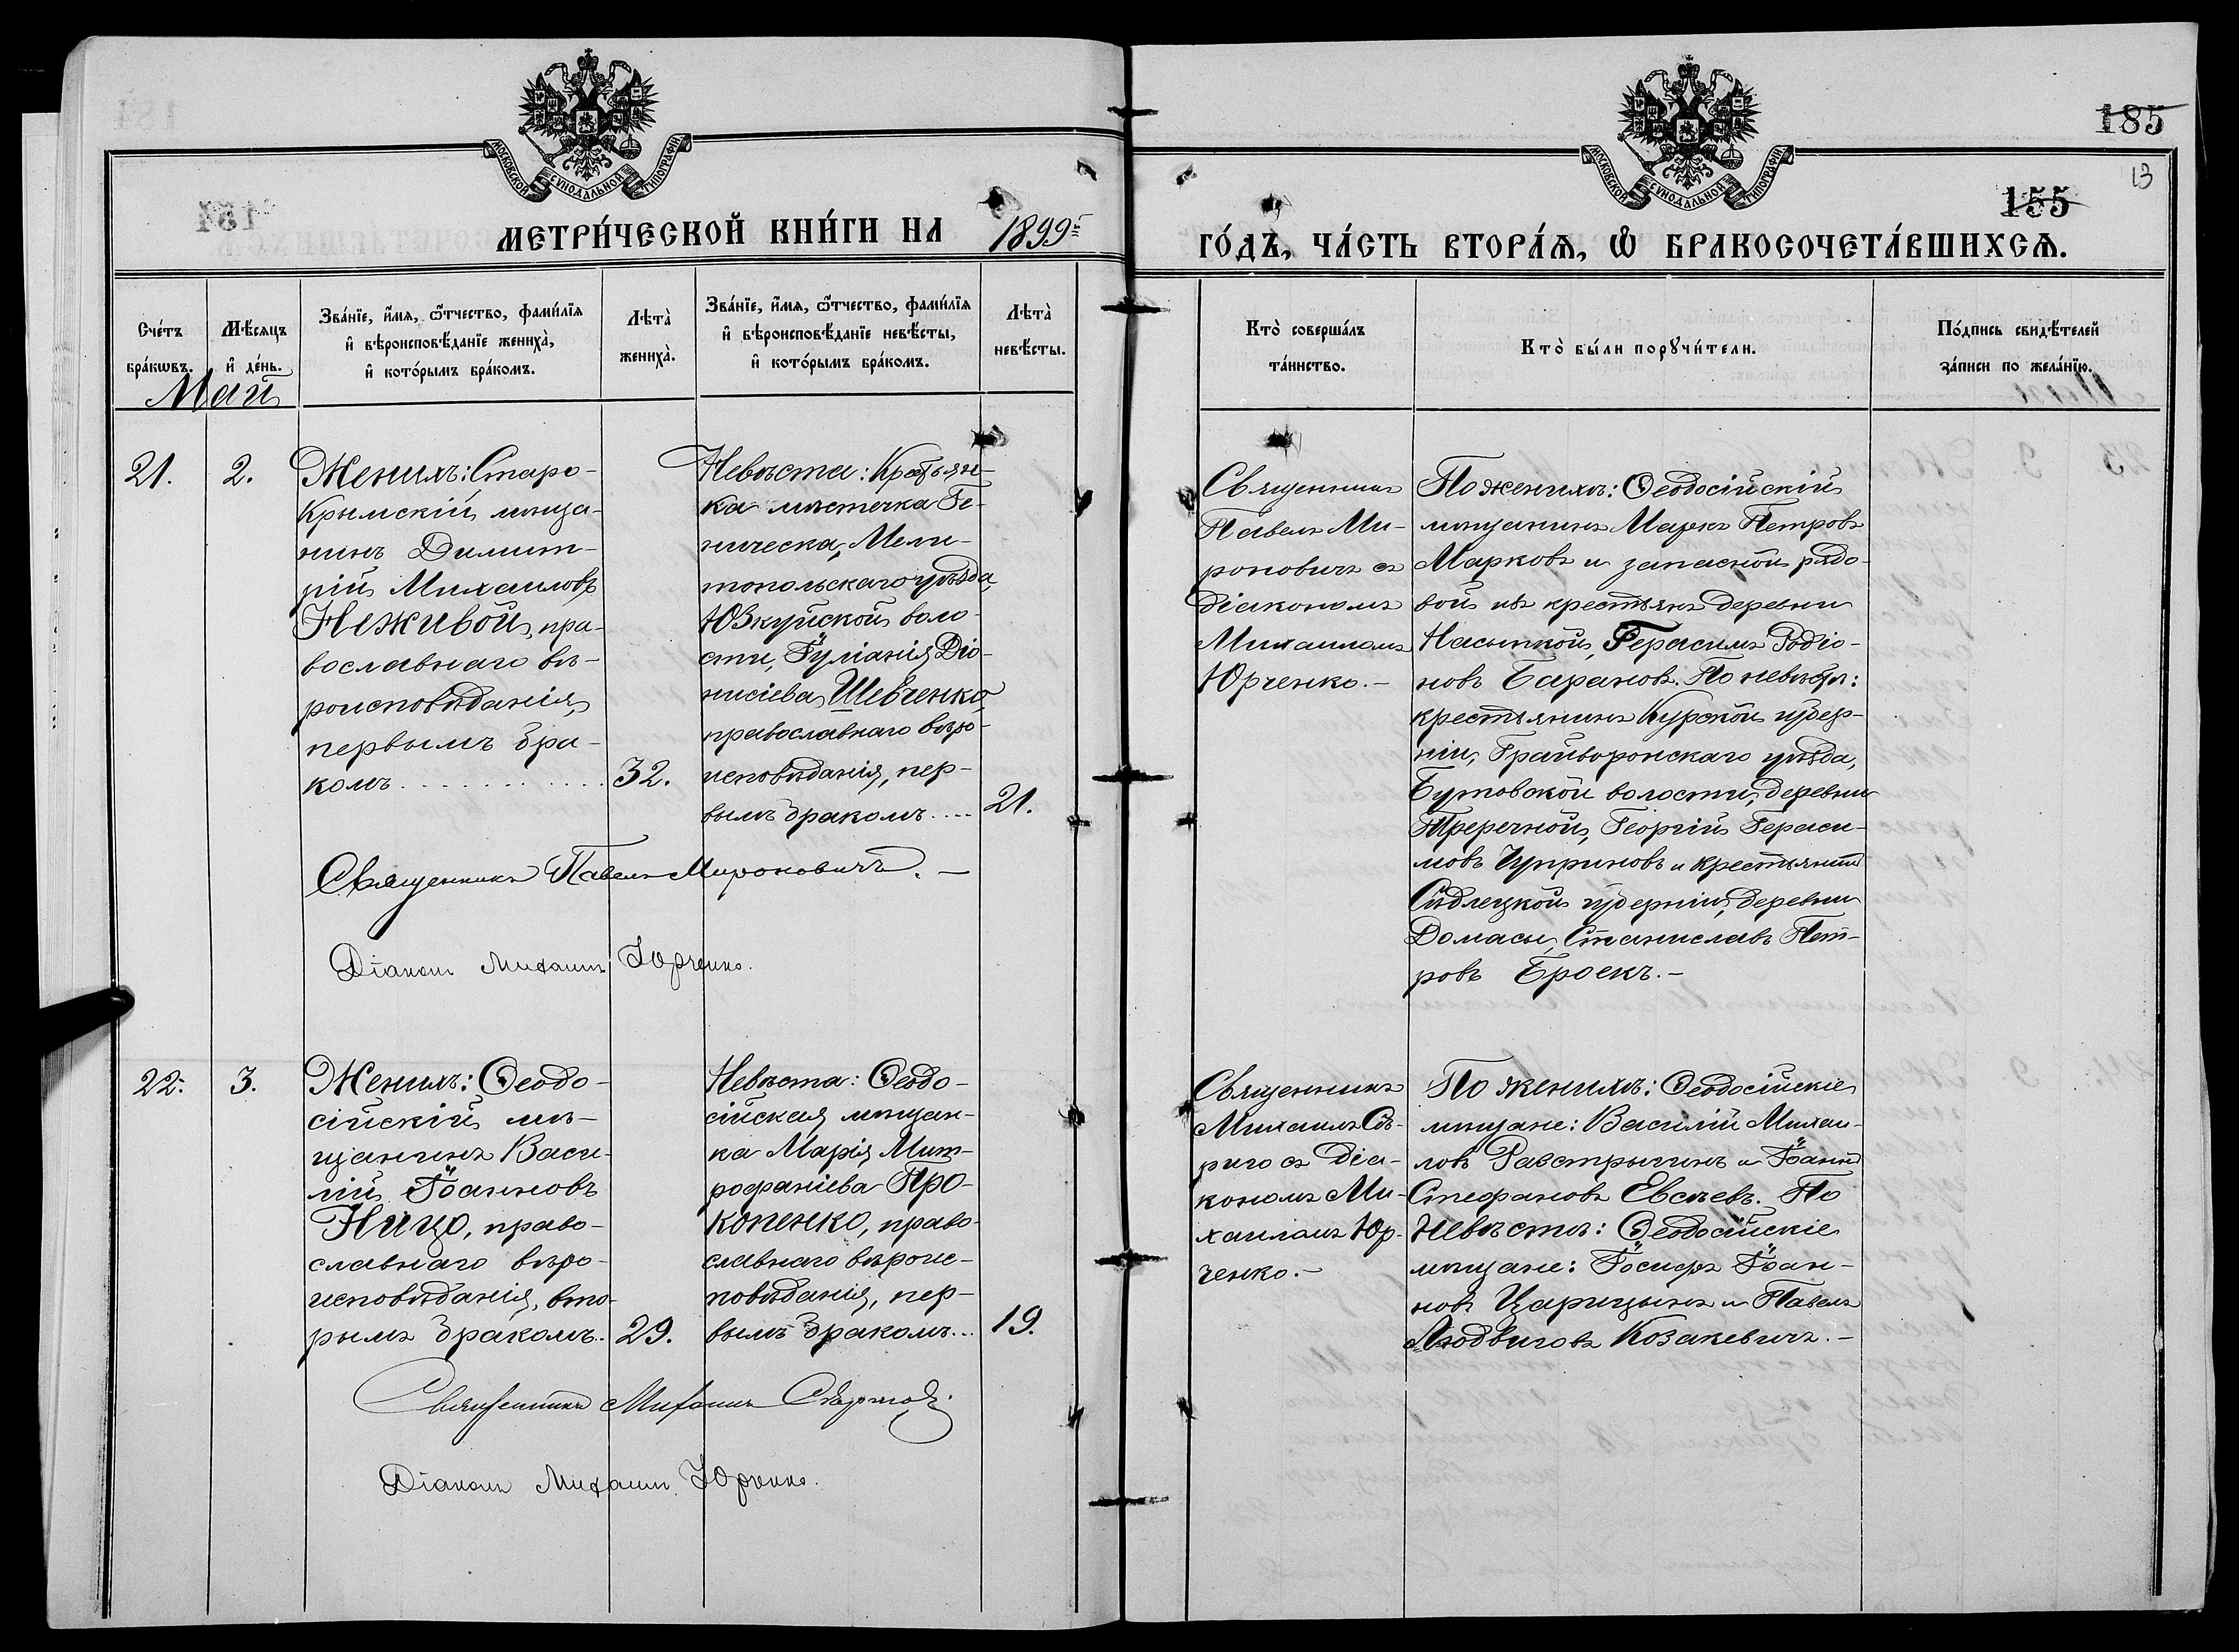 185
13
155
МОСКОВСКОЙ СѴНОДАЛЬНОЙ ТИПОГРАФІИ
МОСКОВСКОЙ СѴНОДАЛЬНОЙ ТИПОГРАФІИ
МЕТРИ́ЧЕСКОЙ КНИ́ГИ НА 1899 г.
ГО́ДЪ, ЧА́СТЬ ВТОРА́Ѧ, Ѡ҆ БРАКОСОЧЕТА́ВШИХСѦ.
Сче́тъ
бра́кѡвъ.
Мѣ́сѧцъ
и҆ де́нь.
Зва́нїе, и҆́мѧ, ѻ҆́тчество, фами́лїѧ
и҆ вѣроисповѣ́данїе жениха̀,
и҆ кото́рымъ бра́комъ.
Лѣта̀
жениха̀.
Зва́нїе, и҆́мѧ, ѻ҆́тчество, фами́лїѧ
и҆ вѣроисповѣ́данїе невѣ́сты,
и҆ кото́рымъ бра́комъ.
Лѣта̀
невѣ́сты.
Кто̀ соверша́лъ
та́инство.
Кто̀ бы́ли порꙋчи́тели.
По́дпись свидѣ́телей
за́писи по жела́нїю.
Май
21.
2.
Женихъ: Старо-
Крымскій мѣща-
нинъ Димит-
рій Михаиловъ
Неживой, пра-
вославнаго вѣ-
роисповѣданія,
первымъ бра-
комъ............
32.
Невѣста: Крестьян-
ка мѣстечка Ге-
ническа, Мели-
топольскаго уѣзда,
Юзкуйской воло-
сти, Іуліанія Діо-
нисіева Шевченко,
православнаго вѣро-
исповѣданія, пер-
вымъ бракомъ....
21.
Священникъ
Павелъ Ми-
роновичъ съ
діакономъ
Михаиломъ
Юрченко.-
По женихѣ: Ѳеодосійскій
мѣщанинъ Маркъ Петровъ
Марковъ и запасной рядо-
вой изъ крестьянъ деревни
Насыпной, Герасимъ Родіо-
новъ Барановъ. По невѣстѣ:
крестьянинъ Курской губер-
ніи, Грайворонскаго уѣзда,
Бутовской волости, деревни
Георгій Гераси-
мовъ Чуприновъ и крестьянинъ
Сѣдлецкой губерніи, деревни
Домасы, Станиславъ Пет-
ровъ Броекъ.-
Священникъ Павелъ Мироновичъ.-
Діаконъ Михаилъ Юрченко.
22.
3.
Женихъ: Ѳеодо-
сійскій мѣ-
щанинъ Васи-
лій Іоанновъ
Ницо, право-
славнаго вѣро-
исповѣданія, вто-
рымъ бракомъ.
29.
Невѣста: Ѳеодо-
сійская мѣщан-
ка Марія Мит-
рофаніева Про-
копенко, право-
славнаго вѣроис-
повѣданія, пер-
вымъ бракомъ...
19.
Священникъ
Михаилъ Сѣ-
риго съ діа-
кономъ Ми-
хаиломъ Юр-
ченко.-
По женихѣ: Ѳеодосійскіе
мѣщане: Василій Михаи-
ловъ Растрыгинъ и Іоаннъ
Стефановъ Евсѣевъ. По
Невѣстѣ: Ѳеодосійскіе
мѣщане: Іосифъ Іоан-
новъ Царицынъ и Павелъ
Людвиговъ Козакевичъ.-
Священникъ Михаилъ
Діаконъ Михаилъ Юрченко.